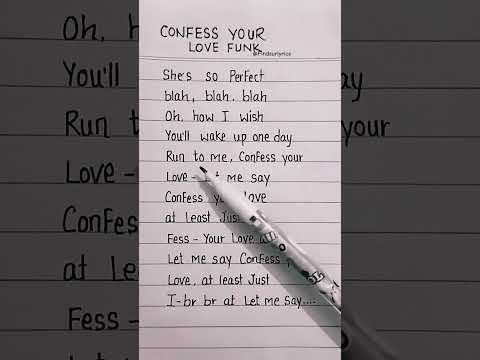 CONFESS YOUR
LOVE FUNK
@Findsurlyrics
She's so Perfect
blah, blah. blah
Oh, how I wish
You'll wake up one day
Run to me, Confess your
Love - Let me say
Confess your Love
at least Just
Fess - Your Love
Let me say Confess
Love, at least Just
I-br br at Let me Say....